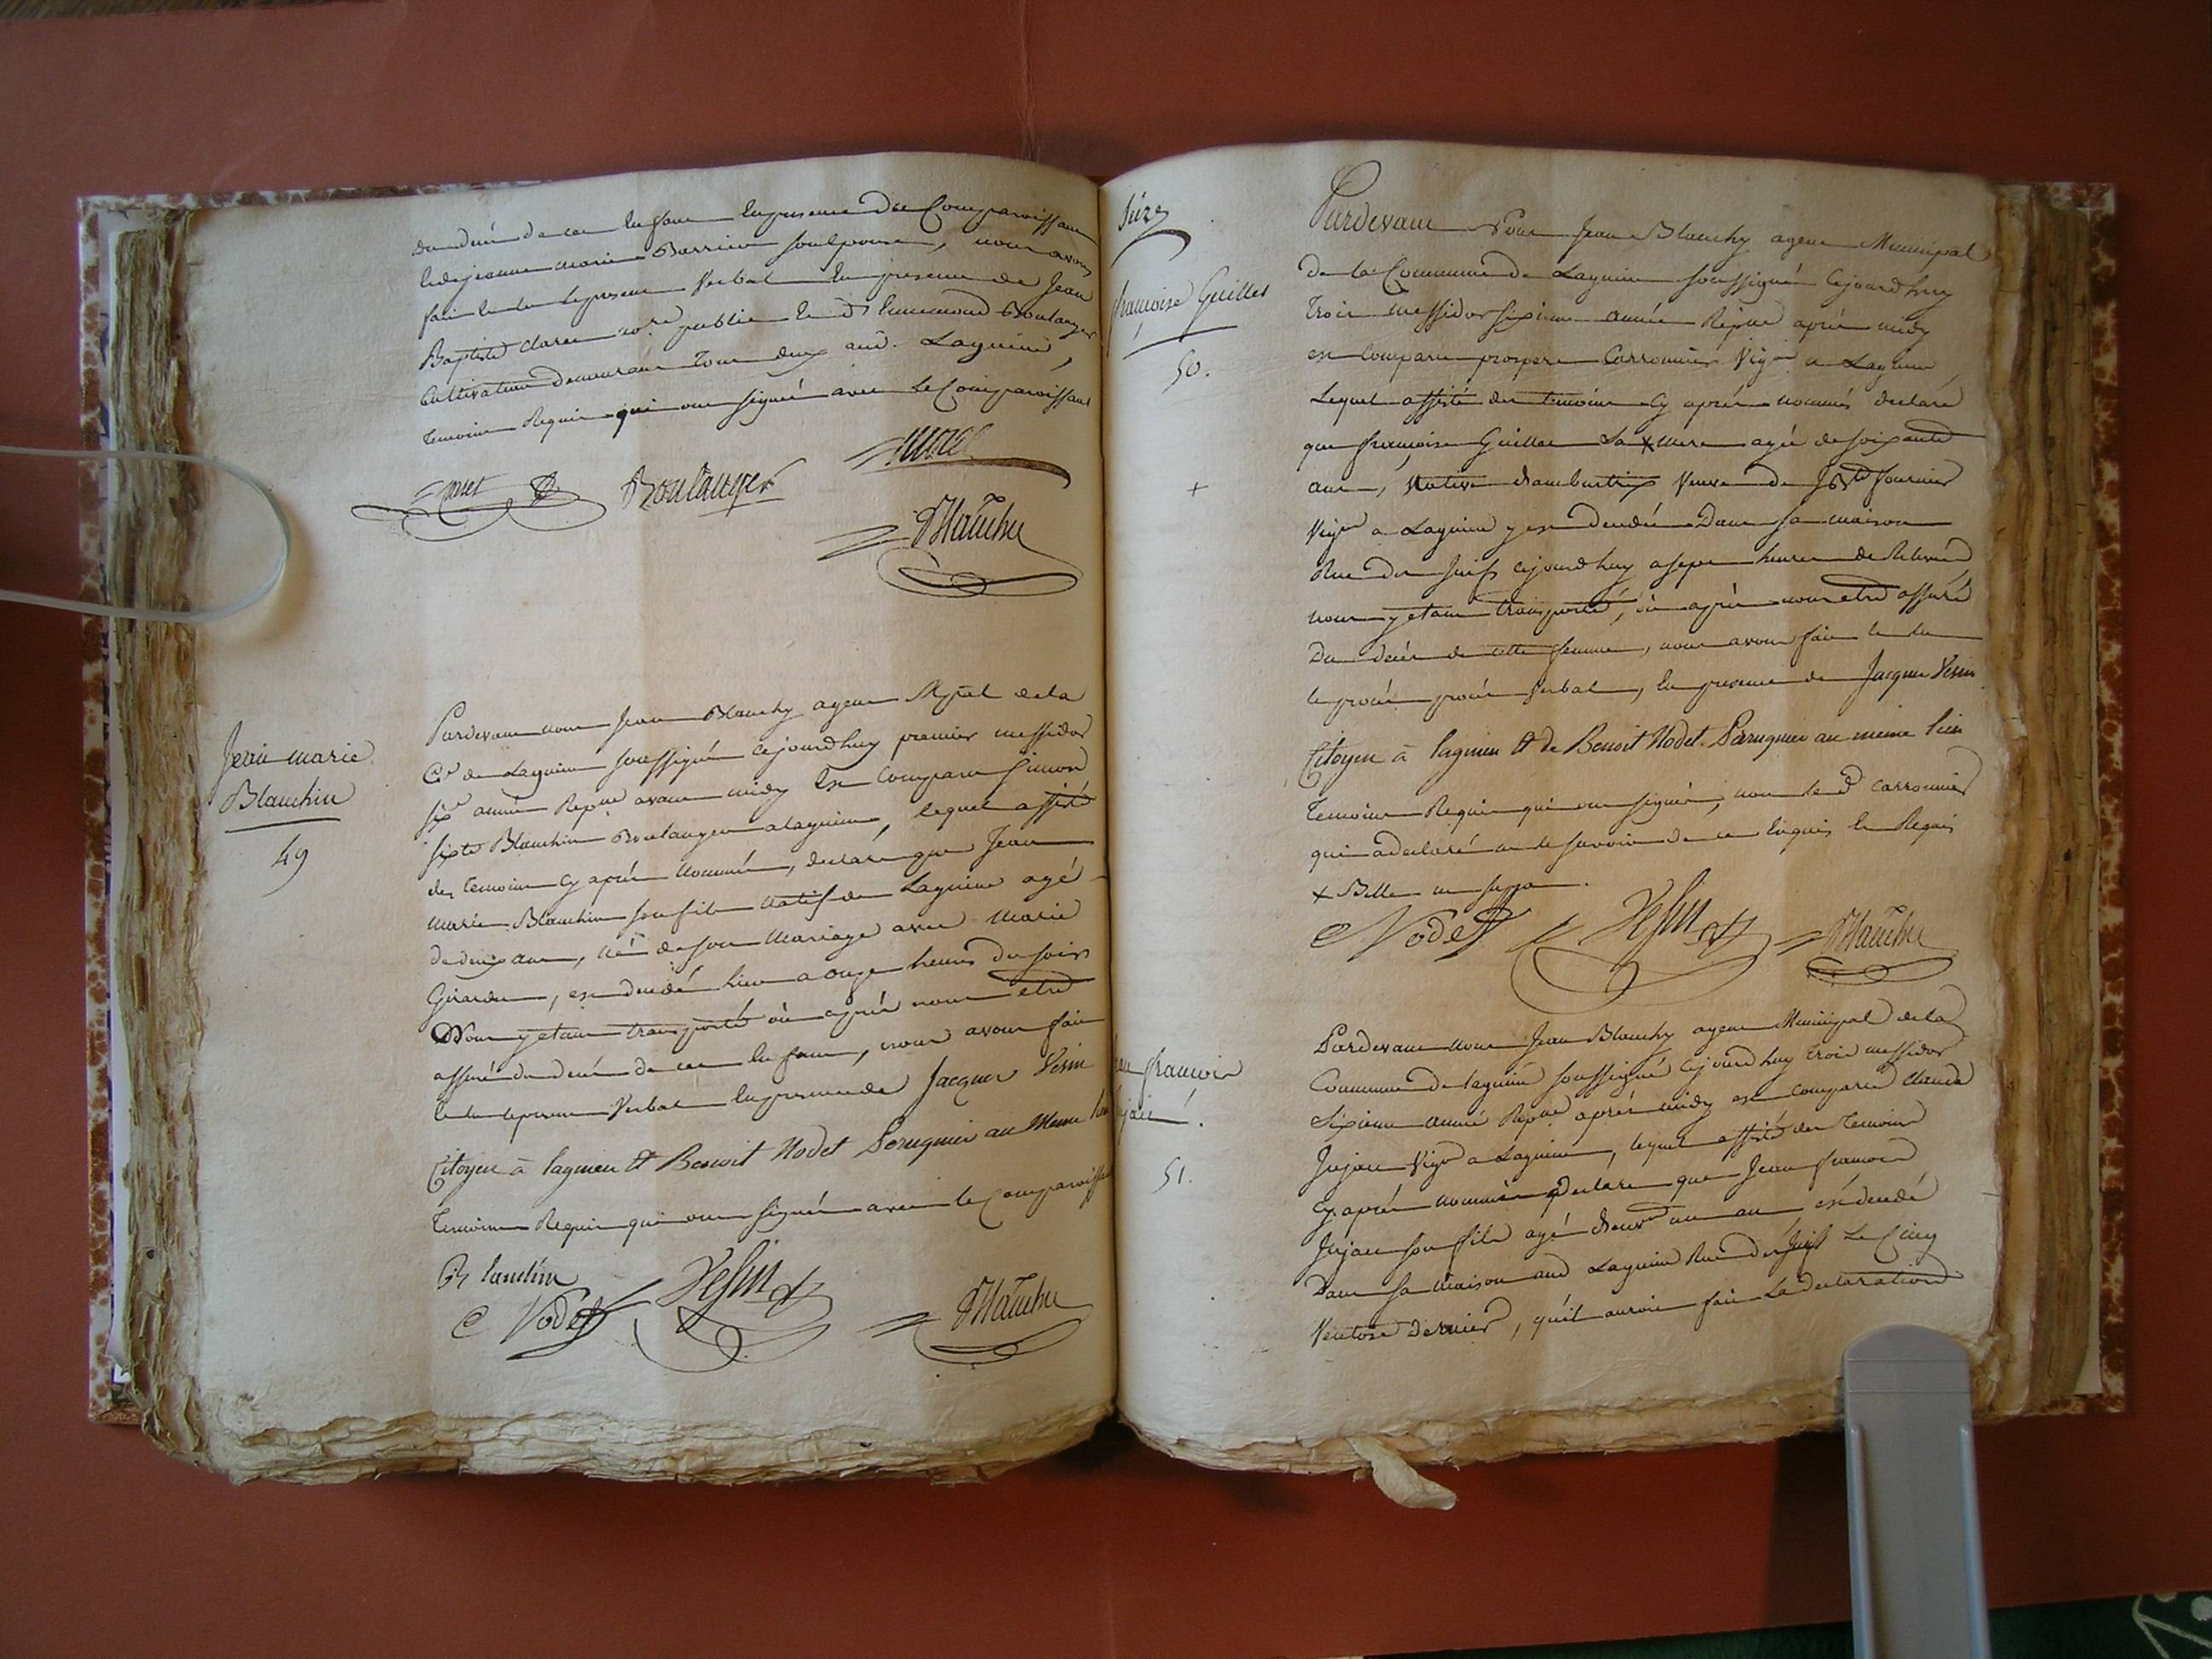 du decés de cet enfant en presence du Comparoissant
et de jeanne marie Barrier son epouse, nous avons
fait et clos le present Verbal en presence de Jean
Baptiste no.re public et d' Ennemond Boulanger
Cultivateur demeurant tous deux aud. Lagnieu,
temoins Requis qui ont signé avec le Comparoissant
Boulanger
Blanchy
Jean marie
Blanchin
49
Pardevant nous Jean Blanchy agent M.pal de la
C.e de Lagnieu soussigné cejourdhuy premier messidor
six.e année Rep.ne avant midy Est Comparu Simond
sixte Blanchin Boulanger a lagnieu, lequel assisté
des temoins cy aprés nommés, declare que Jean
marie Blanchin son fils natif de Lagnieu agé
de deux ans, né de son mariage avec marie
Girardin, est decedé hier a onze heures du soir
Nous y etant transporté où aprés nous etre
assuré du decés de cet enfant, nous avons fait
et clos le present Verbal en presence de Jacques Vesin
Citoyen à lagnieu et Benoit Nodet Perruquier au meme lieu
temoins Requis qui ont signés avec le Comparoissant
Blanchin
C Nodet Vesin Blanchy
françoise Guillet
50.
Pardevant Nous Jean Blanchy agent Municipal
de la Commune de Lagnieu soussigné Cejourdhuy
trois messidor sixieme année Rep.ne aprés midy
est Comparu prospere Carronnier Vig.on a Lagnieu,
Lequel assisté des temoins cy aprés nommés declare
que françoise Guillet sa x mere agée de soixante
ans, Native d'ambutrix Veuve de J B.te fournier
+
Vig.on a Lagnieu y est decedée Dans sa maison
Rue des Juifs cejourdhuy a sept heures de Relevée
nous y etant transporté, où aprés nous etre assuré
Du decés de cette femme, nous avons fait et clos
le procés procés Verbal, en presence de Jacques Vesin
Citoyen à lagnieu et de Benoit Nodet Perruquier au meme lieu
temoins Requis qui ont signés, non led. Carronnier
qui a declaré ne le savoir de ce Enquis et Requis
x Belle
C Nodet Vesin Blanchy
Jean françois
Jujat.
51.
Pardevant nous Jean Blanchy agent Municipal de la
Commune de lagnieu soussigné Cejourdhuy trois messidor
Sixieme année Rep.ne aprés midy est comparu Claude
Jujat Vig.on a Lagnieu, lequel assisté des temoins
cy aprés nommés declare que Jean françois
Jujat son fils agé d'env.on un an est decedé
Dans sa maison aud. Lagnieu Rue des Juifs Le Cinq
Ventose Dernier, qu'il auroit fait La declaration